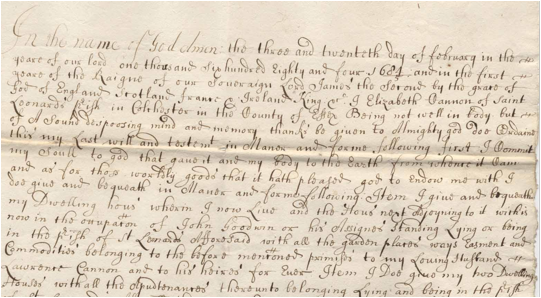 In the name of God Amen the three and twenteth day of february in the
yeare of our lord one thousand six hundred Eighty and four 1684 and in the first
yeare of the Raigne of our Soveraign Lord James the Second by the grace of
God of England Scotland france & Ireland King &c I Elizabeth Cannon of Saint
Leonards Pish in Colchester in the County of Essex Being not well in body but
of A Sound despossing mind and memory thanks be given to Almighty god Doe Ordaine
this my Last will and testemt in Maner and forme following first I Committ
my Soull to god that gave it and my body to the Earth from whence it Cam
and as for thos worldly goods that it hath pleased god to Endow me with I
doe give and bequeath in Maner and forme following Item I give and bequeath
my Dwelling hous wherin I now Live and the Hous next adjoyning to it wch is
now in the occupation of John Goodwin or his Assignes Standing Lying or being
in the Pish of St Leonards Afforesaid with all the garden places ways Easment and
Commodities belonging to the before mentoned primises to my Loving Husband
Lawrence Cannon and to his heires for Ever Item I Doe give my two Dwelling
Houses with all the Apurtenances thereunto belonging Lying and being in the Pish